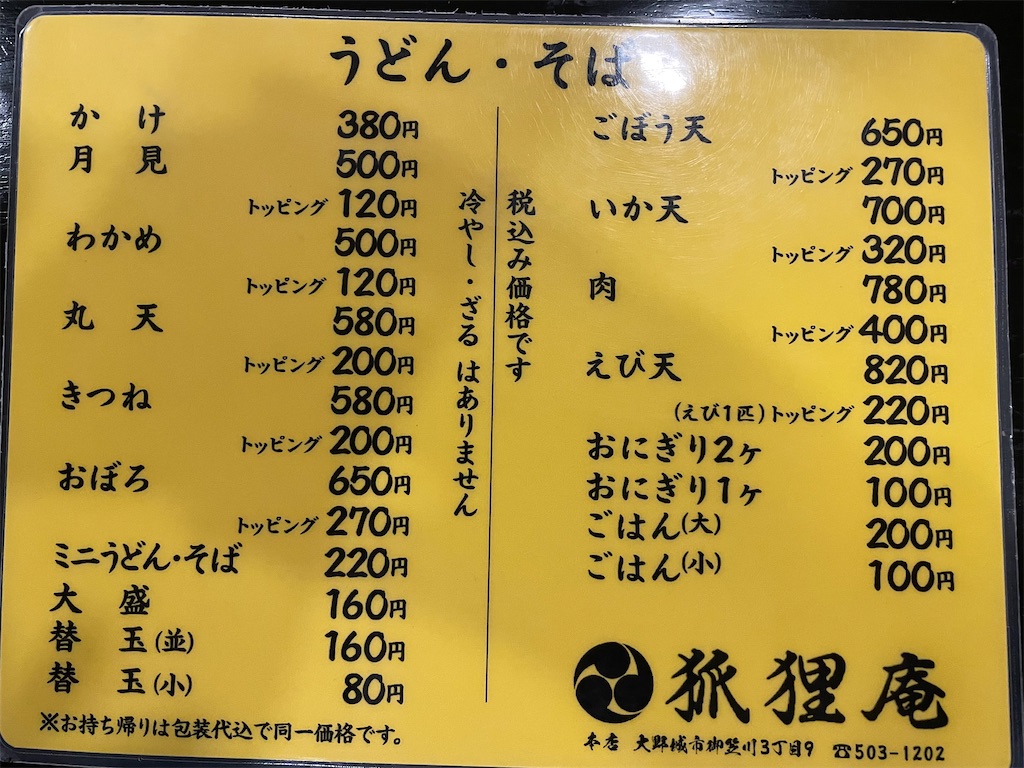 うどん・そば
かけ 380円
月見 500円
トッピング 120円
わかめ 500円
トッピング 120円
丸天 580円
トッピング 200円
きつね 580円
トッピング 200円
おぼろ 650円
トッピング 270円
ミニうどん・そば 220円
大盛 160円
替玉(並) 160円
替玉(小) 80円
※お持ち帰りは包装代込で同一価格です。
税込み価格です
冷やし・ざる はありません
ごぼう天 650円
トッピング 270円
いか天 700円
トッピング 320円
肉 780円
トッピング 400円
えび天 820円
(えび1匹)トッピング 220円
おにぎり2ヶ 200円
おにぎり1ヶ 100円
ごはん(大) 200円
ごはん(小) 100円
狐狸庵
本店 大野城市御笠川3丁目9 ☎503-1202